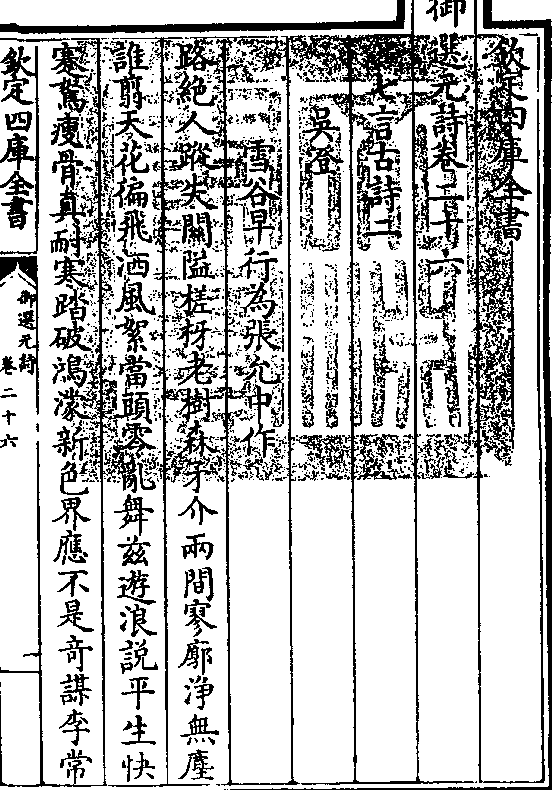 欽定四庫全書
御選元詩卷二十六
七言古詩二
吳澄
雪谷早行為張允中作
路絶人蹤失關隘槎枒老樹森牙介兩間寥廓浄無塵
誰剪天花徧飛洒風絮當頭零亂舞兹遊浪説平生快
寒驚瘦骨真耐寒踏破鴻濛新色界應不是奇謀李常
欽定四庫全書
御選元詩
卷二十六
一